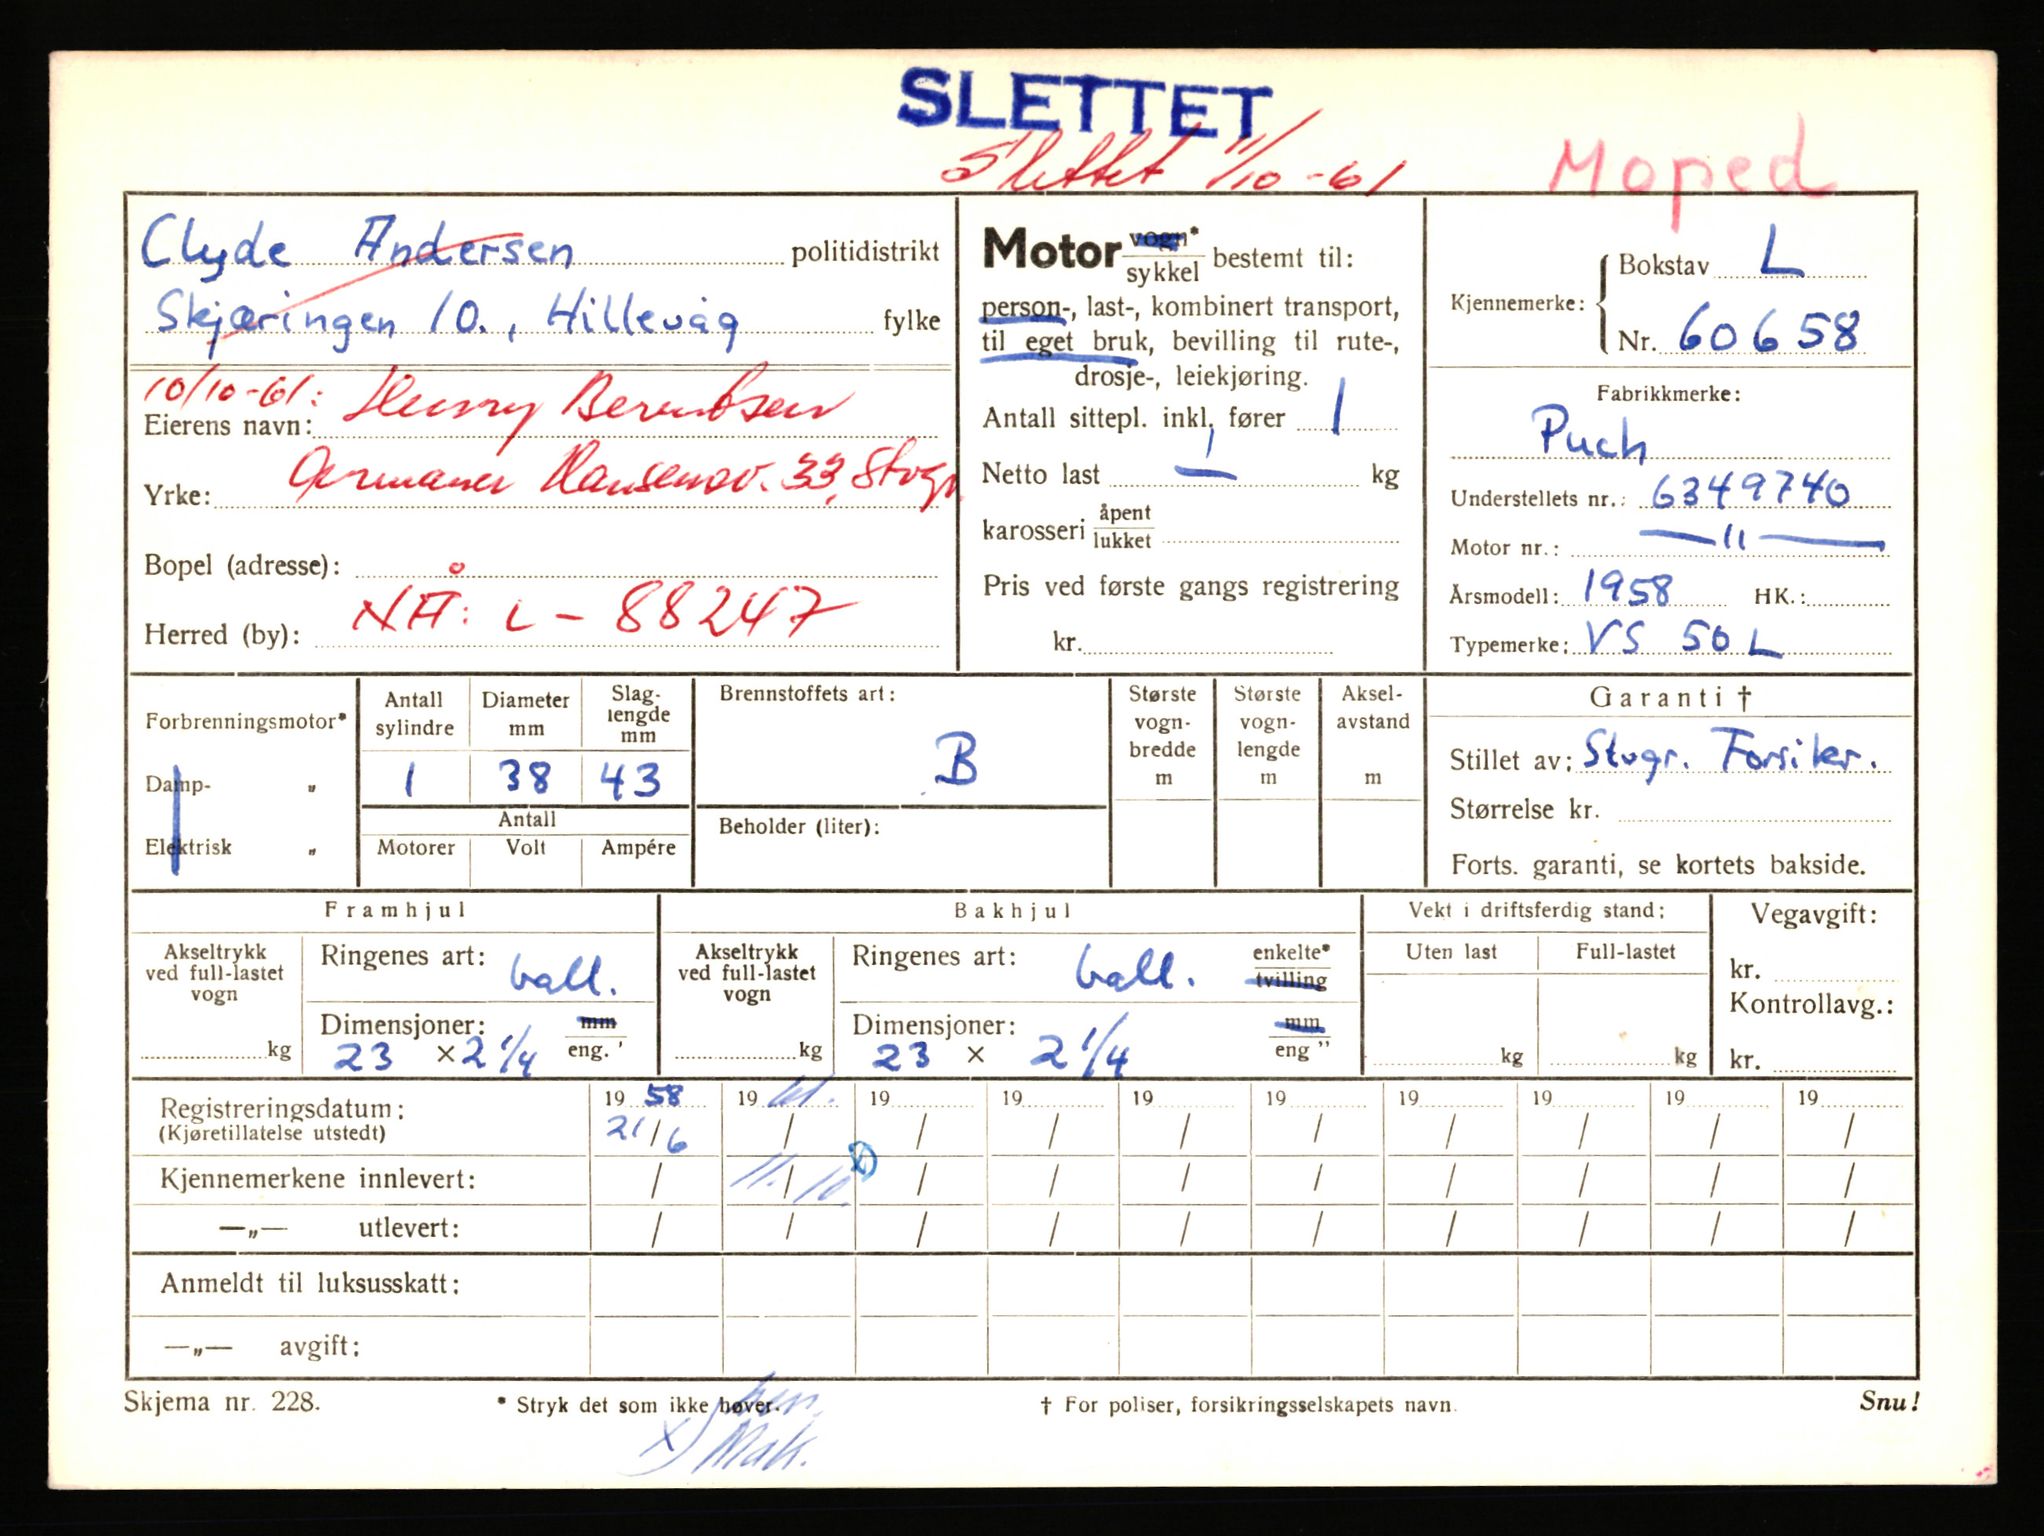 SLETTET
Slettet 11/10-61
Moped
Clyde Andersen politidistrikt
Skjæringen 10., Hillevåg fylke
10/10-61: Henry Berentsen
Eierens navn:
Hansensv. 33, Stvgr
Yrke:
Bopel (adresse):
NÅ: L-88247
Herred (by):
Motor vogn*
sykkel bestemt til:
person-, last-, kombinert transport,
til eget bruk, bevilling til rute-,
drosje-, leiekjøring.
Antall sittepl. inkl. fører 1
Netto last — kg
karosseri åpent
lukket
Pris ved første gangs registrering
kr.
Kjennemerke: { Bokstav L
Nr. 60658
Fabrikkmerke:
Puch
Understellets nr.: 6349740
Motor nr.: — 11 —
Årsmodell: 1958 HK.:
Typemerke: VS 50 L
Forbrenningsmotor*
Damp- „
Elektrisk „
Antall sylindre
Diameter mm
Slag-lengde mm
1 38 43
Antall
Motorer Volt Ampére
Brennstoffets art:
B
Beholder (liter):
Største vogn-bredde m
Største vogn-lengde m
Aksel-avstand m
Garanti †
Stillet av: Stvgr. Forsikr.
Størrelse kr.
Forts. garanti, se kortets bakside.
Framhjul
Akseltrykk ved full-lastet vogn
kg
Ringenes art: ball.
Dimensjoner: mm
23 × 2 1/4 eng. '
Bakhjul
Akseltrykk ved full-lastet vogn
kg
Ringenes art: ball. enkelte*
tvilling
Dimensjoner: mm
23 × 2 1/4 eng "
Vekt i driftsferdig stand:
Uten last Full-lastet
kg kg
Vegavgift:
kr.
Kontrollavg.:
kr.
19 58 19 61. 19 19 19 19 19 19 19 19
Registreringsdatum:
(Kjøretillatelse utstedt) 21/6 / / / / / / / / /
Kjennemerkene innlevert: / 11./10. x) / / / / / / / /
—„— utlevert: / / / / / / / / / /
Anmeldt til luksusskatt:
—„— avgift:
Skjema nr. 228.
* Stryk det som ikke høver.
† For poliser, forsikringsselskapets navn.
Snu!
x)
Mak.